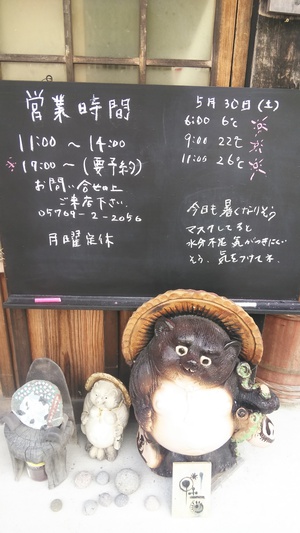 営業時間
11:00 ~ 14:00
19:00 ~ (要予約)
お問い合せの上
ご来店下さい
05769-2-2056
月曜定休
5月30日(土)
6:00 6℃
9:00 22℃
11:00 26℃
今日も暑くなりそう
マスクしてると
水分不足 気がつきにくい
そう、気をつけてネ